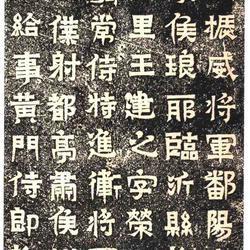 振威將軍鄱陽
侯琅耶臨沂縣
里王建之字榮
常侍特進衛將
僕射都亭肅侯
給事黃門侍郎